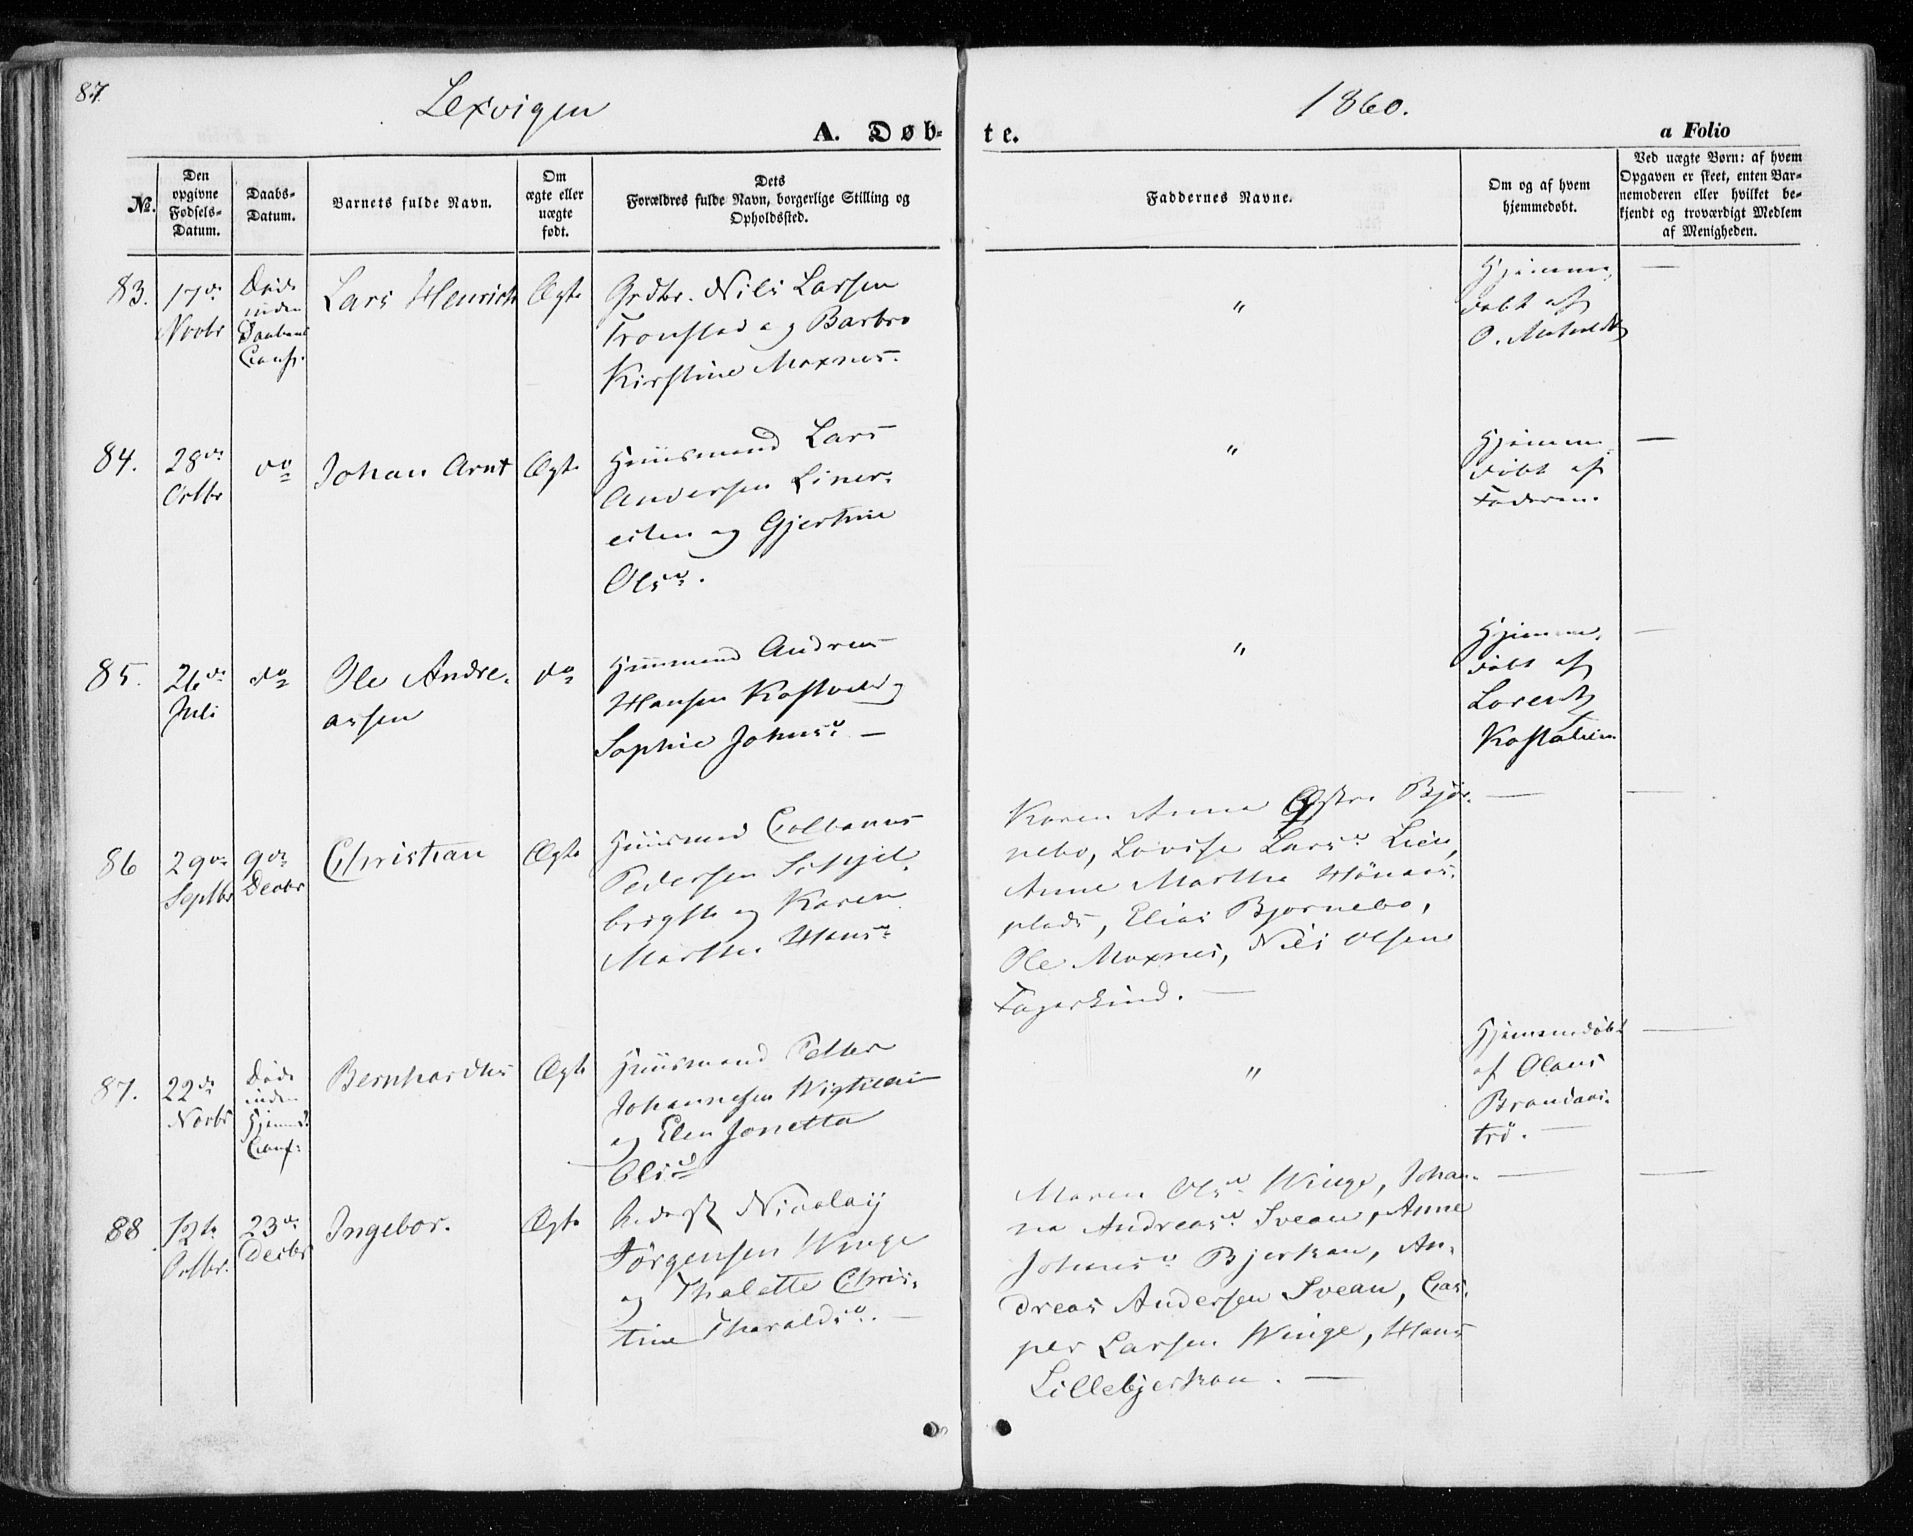 87.
Lexvigen
1860.
A. Døb-
te.
a Folio
No.
Den
opgivne
Fødsels-
Datum.
Daabs-
Datum.
Barnets fulde Navn.
Om
ægte eller
uægte
født.
Dets
Forældres fulde Navn, borgerlige Stilling og
Opholdssted.
Faddernes Navne.
Om og af hvem
hjemmedøbt.
Ved uægte Børn: af hvem
Opgaven er skeet, enten Bar-
nemoderen eller hvilket be-
kjendt og troværdigt Medlem
af Menigheden.
83.
17de
Novbr
Døde
inden
Daabens
Lars Henrich
Ægte
Grdbr. Nils Larsen
Tronstad og Barbro
Kirstine Moxnes.
"
Hjemme-
døbt af
84.
28de
Octbr
do
Johan Arnt
Ægte
Huusmand Lars
Andersen Liner-
eiten og Gjertine
Olsd.
"
Hjemme-
døbt af
Faderen.
85.
26de
Juli
do
Ole Andre-
assen
do
Huusmand Andreas
Hansen
Sophie Johnsd. —
"
Hjemme-
døbt af
Lorentz
86
29de
Septbr
9de
Decbr
Christian
Ægte
Huusmand
Pedersen
og Karen
Marthe Hansd.
Karen Anna Bjør-
nebo, Lovise Larsd. Lien,
Anne Marthe
plads, Elias Bjørnebo,
Ole Moxnes, Nils Olsen
—
87.
22de
Novbr
Døde
inden
Bernhardus
Ægte
Huusmand Petter
Johannesen
og Elen Jonetta
Olsd
"
Hjemmedøbt
af Olaus
Brandaas-
trø. —
88
12te
Octbr.
23de
Decbr
Ingebor.
Ægte
Nicolay
Jørgensen Winge
og Thalette Chris-
tine Tharaldsd. —
Maren Olsd. Winge, Johan-
na Andreasd. Svean, Anne
Johnsd. Bjerkan, An-
dreas Andersen Svean, Cas-
per Larsen Winge, Hans
Lillebjerkan. —